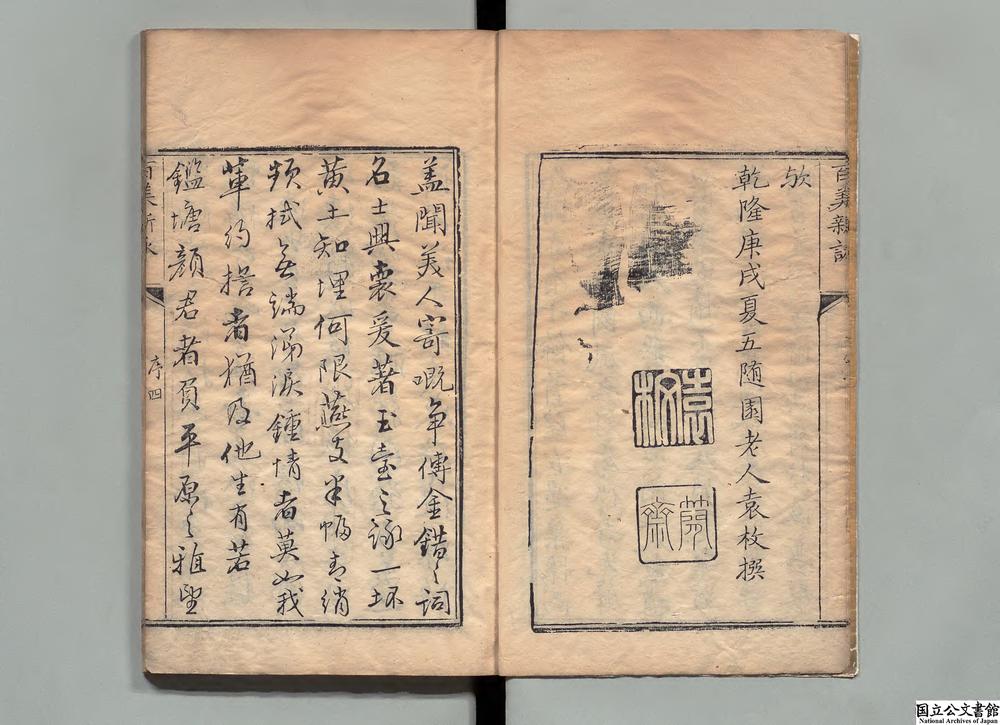 百美新詠
欤
乾隆庚戌夏五随園老人袁枚撰
袁枚
蕳齋
盖聞美人寄嘅争傳金錯之詞
名士興衰爰著玉臺之詠一坏
黄土知埋何限燕支半幅青綃
頻拭無端涕淚鍾情者莫如我
輩約指者猶及他生有若
鑑塘顔君者負平原之雅望
百美新詠
序四
国立公文書館
National Archives of Japan